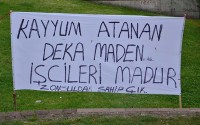 KAYYUM ATANAN
DEKA MADEN
İŞCİLERİ MADUR
ZONGULDAK SAHİP ÇIK